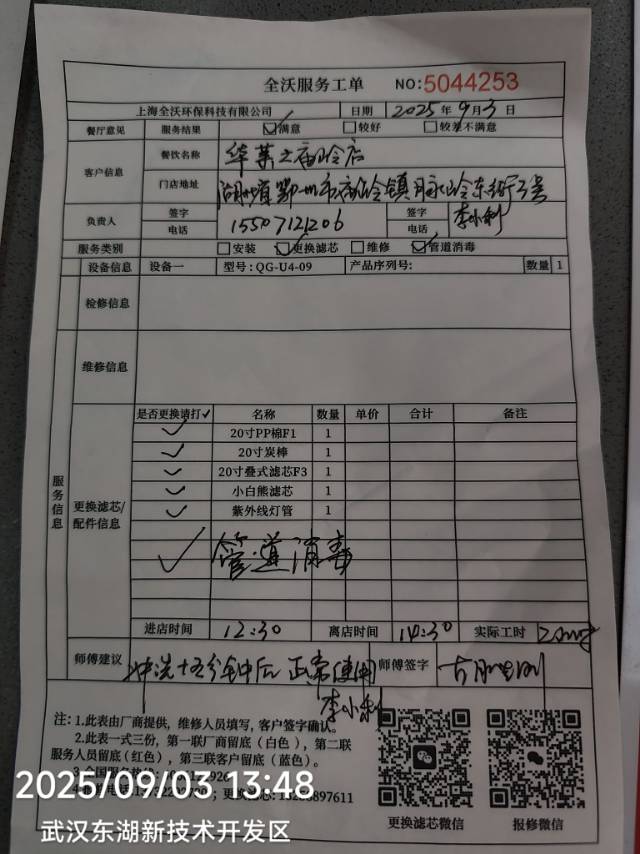 全沃服务工单 NO:5044253
上海全沃环保科技有限公司 日期 2025年9月3日
餐厅意见 服务结果 ☑满意 □较好 □较差不满意
客户信息 餐饮名称
门店地址
负责人 签字 电话 15507121206 签字 电话 李小利
服务类别 □安装 ☑更换滤芯 □维修 ☑管道消毒
设备信息 设备一 型号:QG-U4-09 产品序列号: 数量 1
检修信息
维修信息
服务信息
更换滤芯/配件信息
是否更换请打✓ 名称 数量 单价 合计 备注
✓ 20寸PP棉F1 1
✓ 20寸炭棒 1
✓ 20寸叠式滤芯F3 1
✓ 小白熊滤芯 1
✓ 紫外线灯管 1
✓ 管道消毒
进店时间 12:30 离店时间 14:30 实际工时
师傅建议 冲洗十五分钟后正常使用 师傅签字
李小利
注:1.此表由厂商提供,维修人员填写,客户签字确认。
2.此表一式三份,第一联厂商留底(白色),第二联
服务人员留底(红色),第三联客户留底(蓝色)。
更换滤芯微信 报修微信
2025/09/03 13:48
武汉东湖新技术开发区